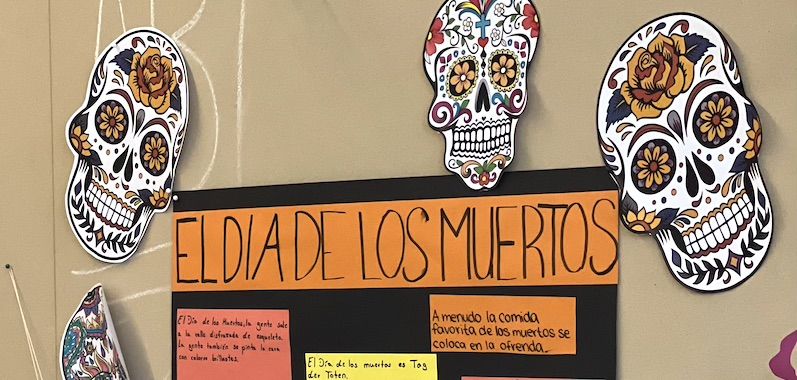 EL DIA DE LOS MUERTOS
El Día de los Muertos, la gente sale
a la calle disfrazada de esqueleto.
La gente también se pinta la cara
con colores brillantes.
A menudo la comida
favorita de los muertos se
coloca en la ofrenda.
El Día de los muertos es Tag
der Toten.